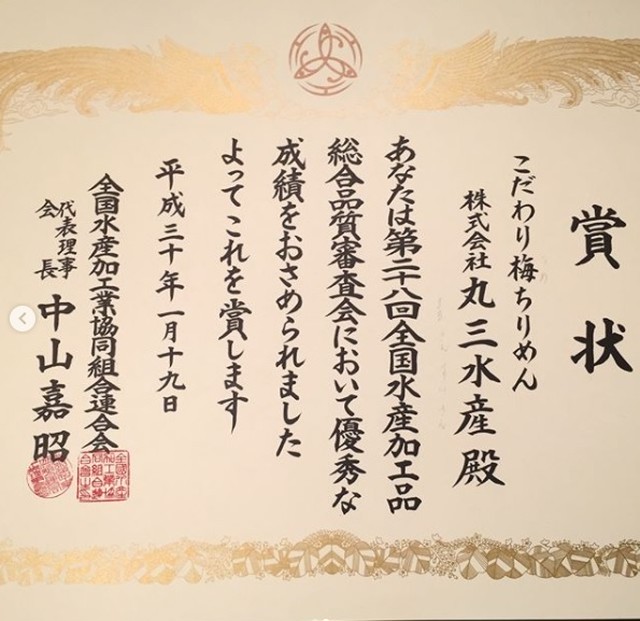 賞状
こだわり梅ちりめん
株式会社 丸三水産殿
あなたは第二十八回全国水産加工品
総合品質審査会において優秀な
成績をおさめられました
よってこれを賞します
平成三十年一月十九日
全国水産加工業協同組合連合会
代表理事
会長 中山嘉昭